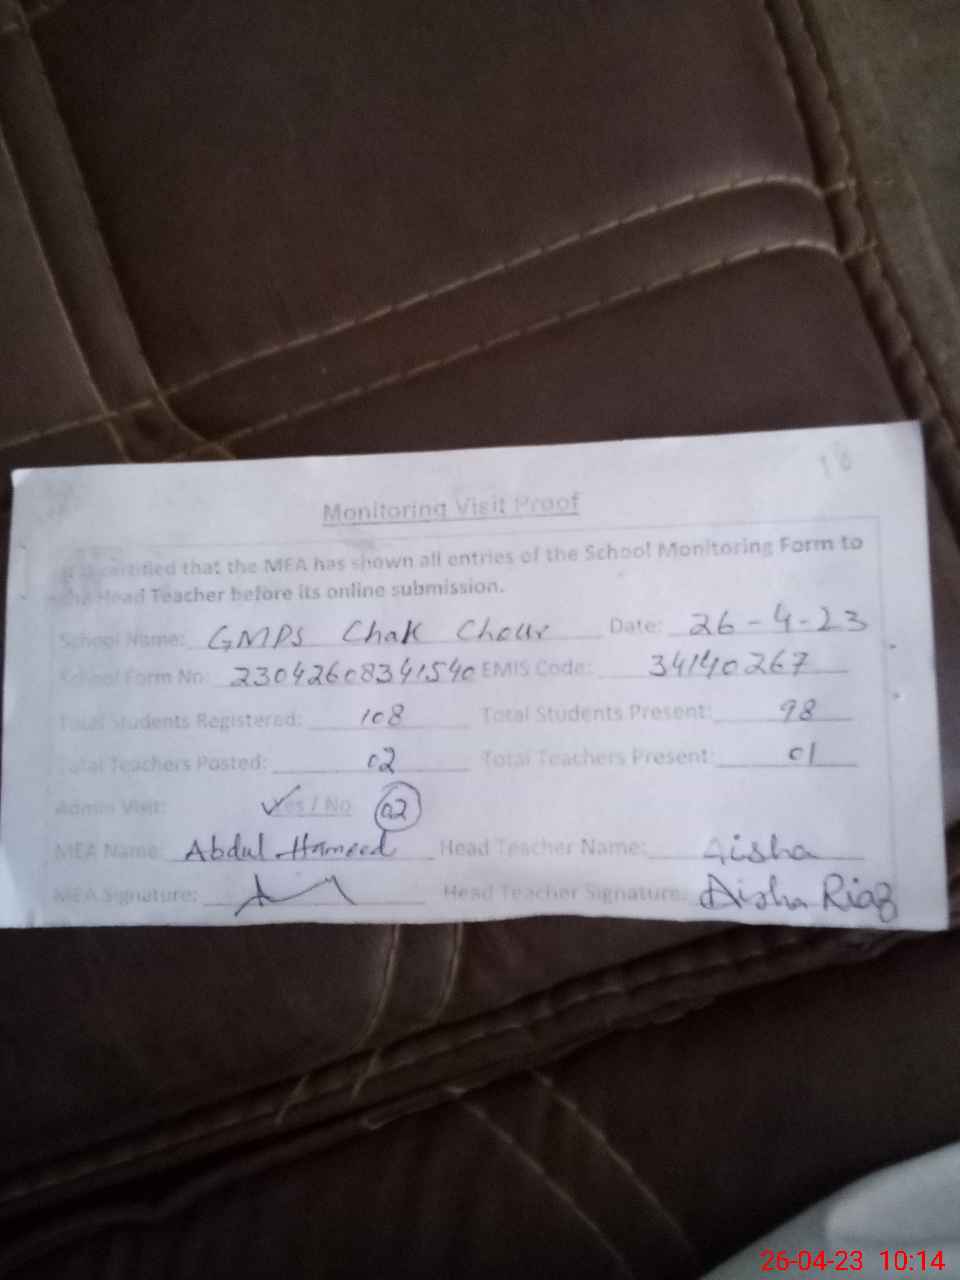 18
Monitoring Visit Proof
It is certified that the MEA has shown all entries of the School Monitoring Form to
the Head Teacher before its online submission.
School Name: GMPS Chak Chour Date: 26-4-23
School Form No: 23042608341540 EMIS Code: 34140267
Total Students Registered: 108 Total Students Present: 98
Total Teachers Posted: 02 Total Teachers Present: 01
Admin Visit: Yes / No 02
MEA Name: Abdul Hameed Head Teacher Name: Aisha
MEA Signature: Head Teacher Signature: Aisha Riaz
26-04-23 10:14